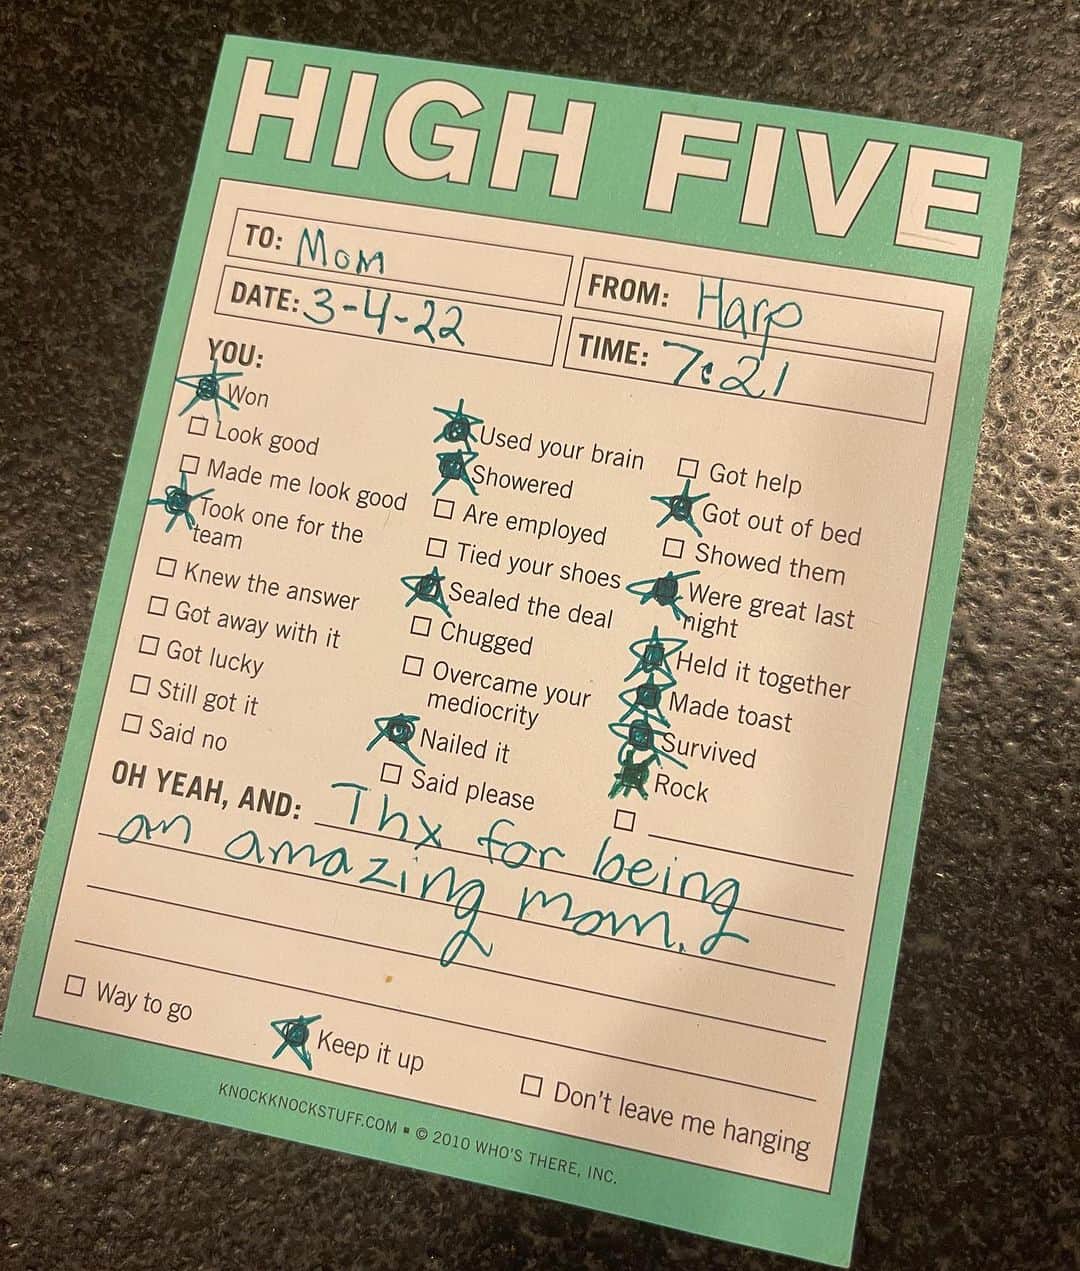 HIGH FIVE
TO: Mom
FROM: Harp
DATE: 3-4-22
TIME: 7:21
YOU:
Won
Look good
Made me look good
Took one for the
team
Knew the answer
Got away with it
Got lucky
Still got it
Said no
Used your brain
Showered
Are employed
Tied your shoes
Sealed the deal
Chugged
Overcame your
mediocrity
Nailed it
Said please
Got help
Got out of bed
Showed them
Were great last
night
Held it together
Made toast
Survived
Rock
OH YEAH, AND: Thx for being
an amazing mom.
Way to go
Keep it up
Don't leave me hanging
KNOCKKNOCKSTUFF.COM ▪ © 2010 WHO'S THERE, INC.